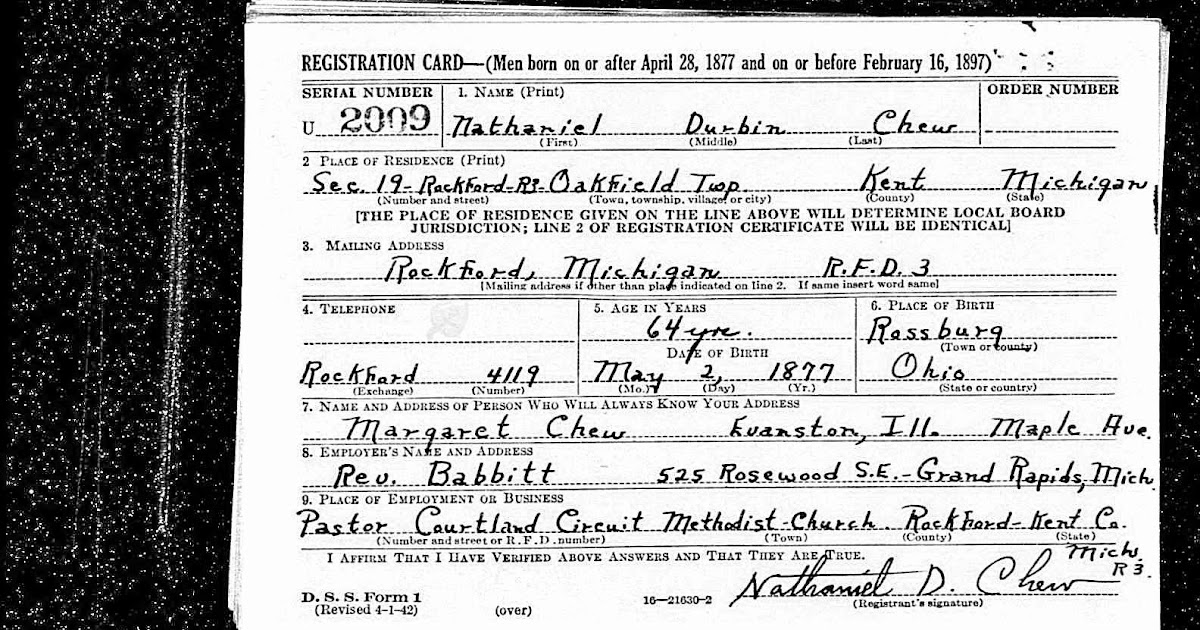 REGISTRATION CARD—(Men born on or after April 28, 1877 and on or before February 16, 1897)
SERIAL NUMBER 1. NAME (Print) ORDER NUMBER
U 2009 Nathaniel Durbin Chew
(First) (Middle) (Last)
2 PLACE OF RESIDENCE (Print)
Sec. 19-Rockford-R3-Oakfield Twp Kent Michigan
(Number and street) (Town, township, village, or city) (County) (State)
[THE PLACE OF RESIDENCE GIVEN ON THE LINE ABOVE WILL DETERMINE LOCAL BOARD
JURISDICTION; LINE 2 OF REGISTRATION CERTIFICATE WILL BE IDENTICAL]
3. MAILING ADDRESS
Rockford, Michigan R.F.D. 3
[Mailing address if other than place indicated on line 2. If same insert word same]
4. TELEPHONE 5. AGE IN YEARS 6. PLACE OF BIRTH
64 yrs. Rossburg
DATE OF BIRTH (Town or county)
Rockford 4119 May 2, 1877 Ohio
(Exchange) (Number) (Mo.) (Day) (Yr.) (State or country)
7. NAME AND ADDRESS OF PERSON WHO WILL ALWAYS KNOW YOUR ADDRESS
Margaret Chew Evanston, Ill. Maple Ave.
8. EMPLOYER'S NAME AND ADDRESS
Rev. Babbitt 525 Rosewood S.E.-Grand Rapids, Mich.
9. PLACE OF EMPLOYMENT OR BUSINESS
Pastor Courtland Circuit Methodist-Church Rockford-Kent Co.
(Number and street or R. F. D. number) (Town) (County) (State)
I AFFIRM THAT I HAVE VERIFIED ABOVE ANSWERS AND THAT THEY ARE TRUE. Mich.
R3.
Nathaniel D. Chew
D. S. S. Form 1
(Revised 4-1-42) (over) 16—21630-2 (Registrant's signature)